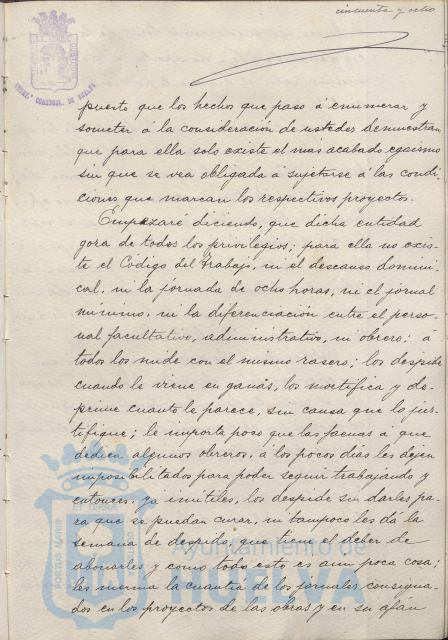 cincuenta y ocho
puesto que los hechos que paso á enumerar y
someter á la consideración de ustedes demuestran
que para ella solo existe el mas acabado egoismo
sin que se vea obligada á sujetarse á las condi-
ciones que marcan los respectivos proyectos.
Empezaré diciendo, que dicha entidad
goza de todos los privilegios; para ella no exis-
te el Codigo del Trabajo, ni el descanso domini-
cal, ni la jornada de ocho horas, ni el jornal
mínimo, ni la diferenciación entre el perso-
nal facultativo, administrativo, ni obrero; á
todos los mide con el mismo rasero; los despide
cuando le viene en ganas, los mortifica y de-
prime cuanto le parece, sin causa que lo jus-
tifique; le importa poco que las faenas á que
dedica algunos obreros, á los pocos dias les dejen
imposibilitados para poder seguir trabajando y
entonces, ya inútiles, los despide sin darles pa-
ra que se puedan curar, ni tampoco les dá la
semana de despido, que tiene el deber de
abonarles y como todo esto es aun poca cosa;
les merma la cuantia de los jornales consigna-
dos en los proyectos de las obras y en su afán
Ayuntamiento de
HUELVA
PORTUS MARIS
ET TERRAE